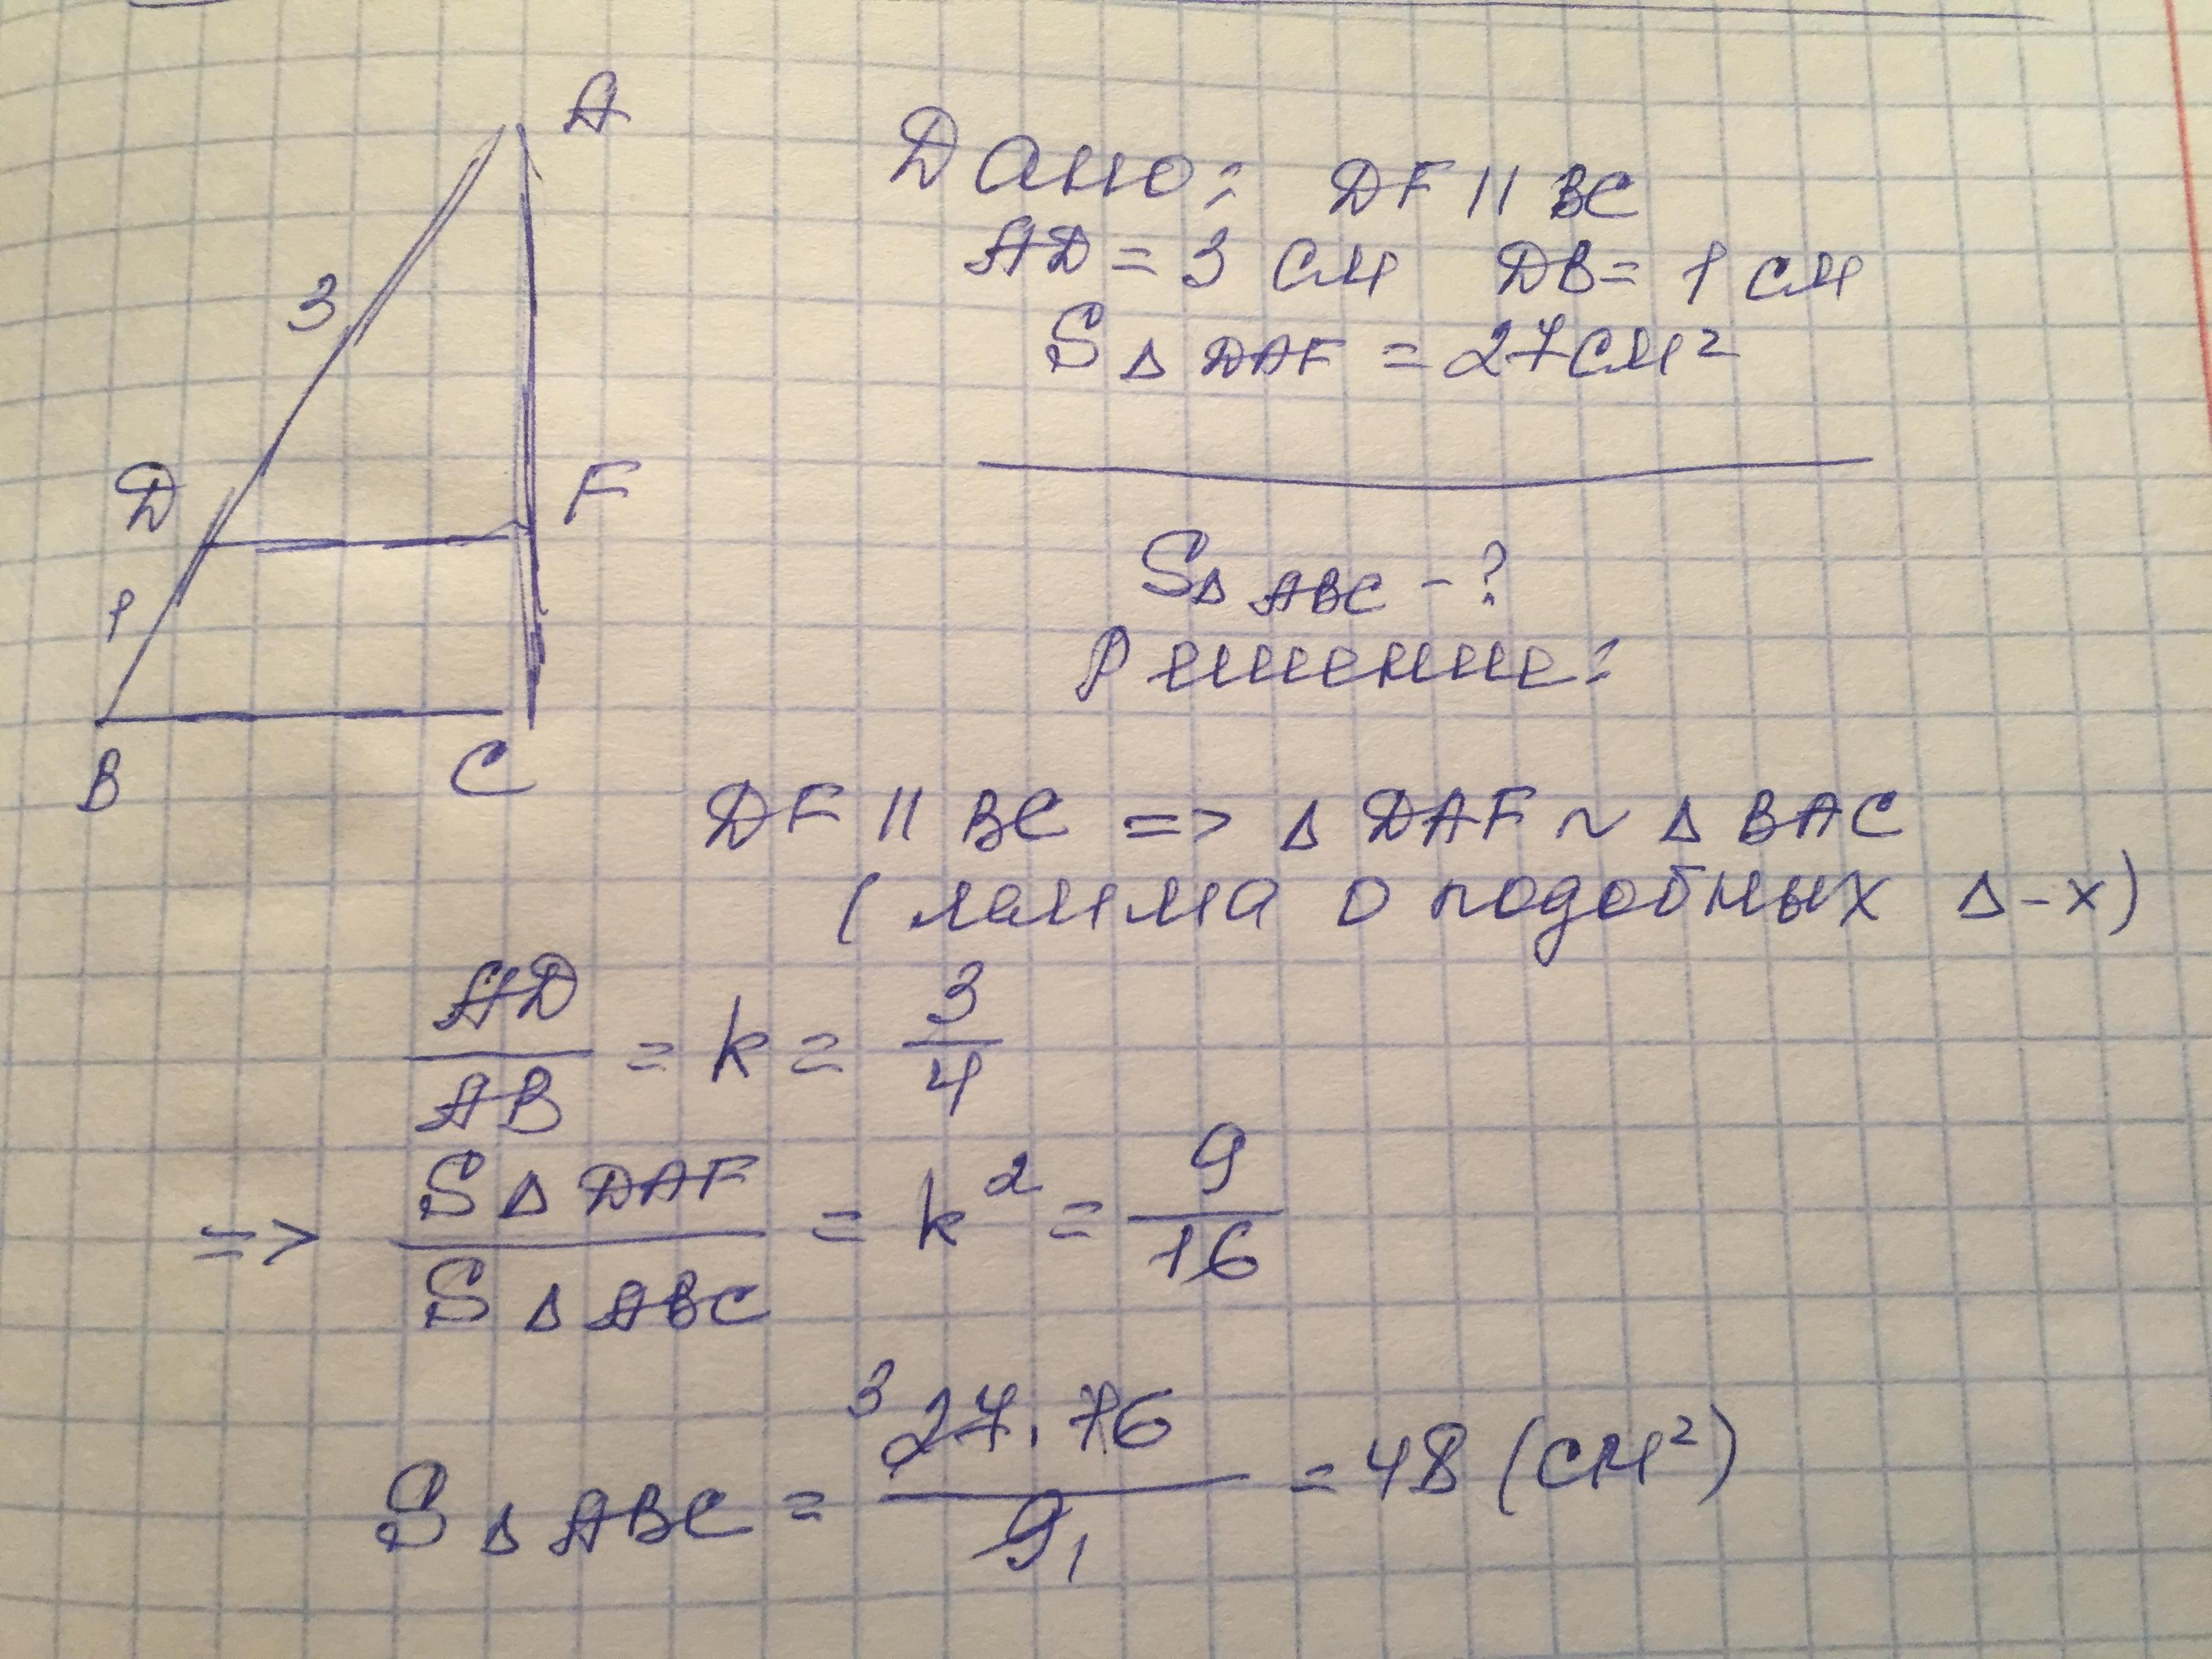 A
3
D
F
1
B
C
Дано: DF || BC
AD = 3 см DB = 1 см
S Δ DAF = 27 см²
S Δ ABC - ?
Решение:
DF || BC => Δ DAF ~ Δ BAC
(лемма о подобных Δ-х)
AD/AB = k = 3/4
=> S Δ DAF / S Δ ABC = k² = 9/16
S Δ ABC = ³27·16 / 9₁ = 48 (см²)